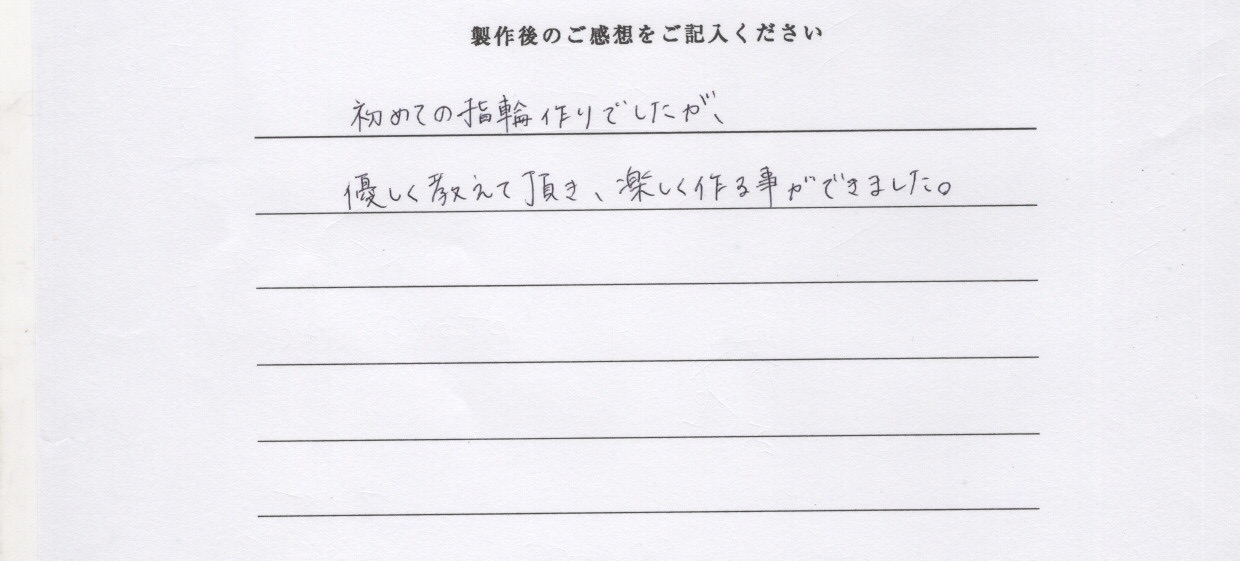 製作後のご感想をご記入ください
初めての指輪作りでしたが、
優しく教えて頂き、楽しく作る事ができました。